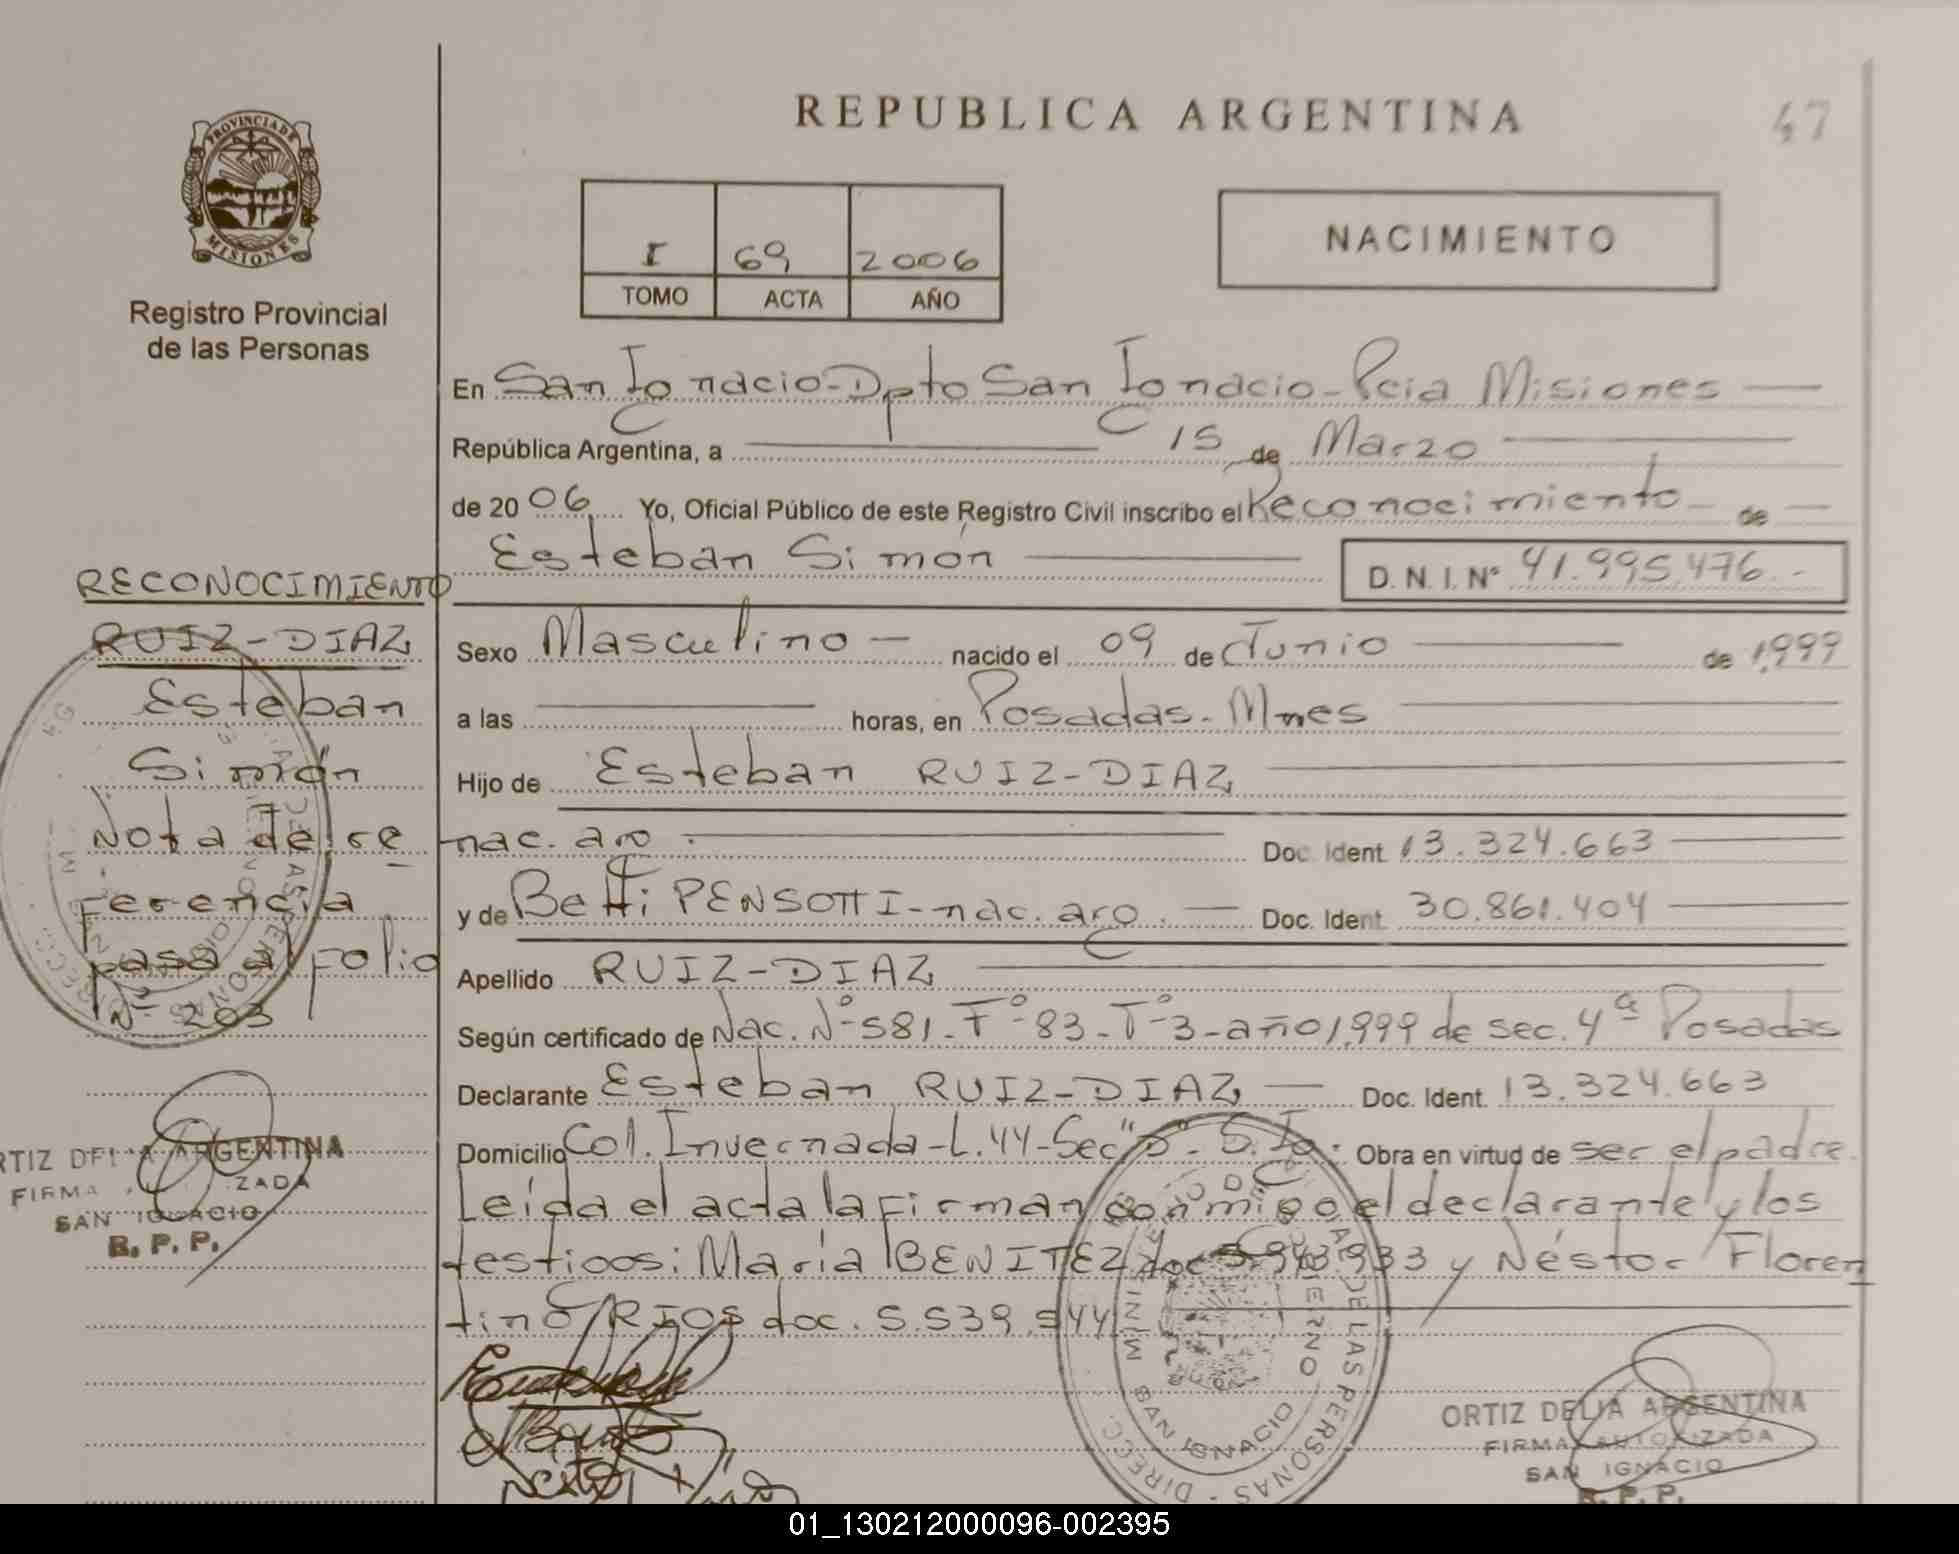 REPUBLICA ARGENTINA
47
PROVINCIA DE
MISIONES
Registro Provincial
de las Personas
I 69 2006
TOMO ACTA AÑO
NACIMIENTO
En San Ignacio-Dpto San Ignacio-Pcia Misiones
República Argentina, a 15 de Marzo
de 20 06 Yo, Oficial Público de este Registro Civil inscribo el Reconocimiento de
Esteban Simón D.N.I.N° 41.995.476.-
Sexo Masculino - nacido el 09 de Junio de 1,999
a las horas, en Posadas-Mnes
Hijo de Esteban RUIZ-DIAZ
nac. aro. Doc. Ident. 13.324.663
y de Betti PENSOTTI-nac. arg. Doc. Ident. 30.861.404
Apellido RUIZ-DIAZ
Según certificado de Nac. N°-581-F°-83-T°-3-año 1,999 de sec. 4ª Posadas
Declarante Esteban RUIZ-DIAZ Doc. Ident. 13.324.663
Domicilio Col. Invernada-L.44-Sec"D"-S.Ig. Obra en virtud de ser el padre.
Leída el acta la firman conmigo el declarante y los
testigos: María BENITEZ doc 5.943.933 y Néstor Floren
tino RIOS doc. 5.539.544
RECONOCIMIENTO
RUIZ-DIAZ
Esteban
Simón
Nota de re
ferencia
pasa al folio
Nº 203
ORTIZ DELIA ARGENTINA
FIRMA AUTORIZADA
SAN IGNACIO
R. P. P.
RTIZ DELIA ARGENTINA
FIRMA ZADA
SAN IGNACIO
R. P. P.
DIRECC. DE LAS PERSONAS
SAN IGNACIO
01_130212000096-002395